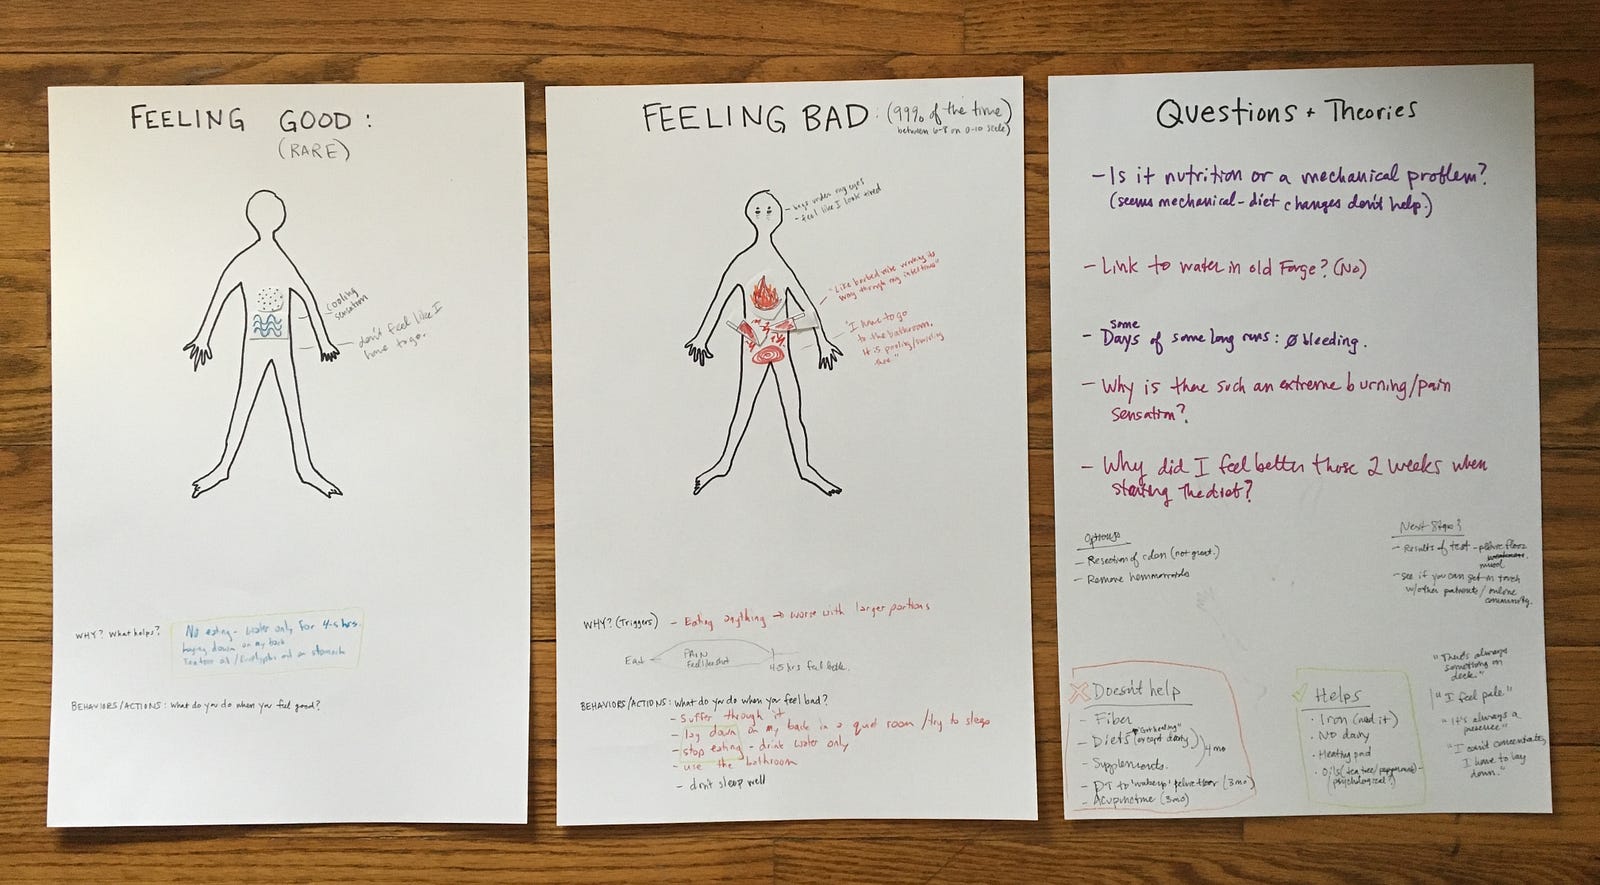 FEELING GOOD:
(RARE)
cooling
sensation
don't feel like I
have to go.
WHY? What helps?
No eating - water only for 4-5 hrs.
laying down on my back
Tea tree oil / Eucalyptus oil on stomach
BEHAVIORS/ACTIONS: What do you do when you feel good?
FEELING BAD: (99% of the time)
between 6-8 on 0-10 scale)
- bags under my eyes
- feel like I look tired
"Like barbed wire working its
way through my intestines"
"I have to go
to the bathroom.
It is pooling/swirling
there."
WHY? (Triggers) - Eating anything → worse with larger portions
Eat
PAIN
Feel like shit
4-5 hrs feel better.
BEHAVIORS/ACTIONS: What do you do when you feel bad?
- suffer through it
- lay down on my back in a quiet room / try to sleep
- stop eating - drink water only
- use the bathroom
- don't sleep well
Questions + Theories
- Is it nutrition or a mechanical problem?
(seems mechanical - diet changes don't help.)
- Link to water in old Forge? (No)
some
- Days of some long runs: Ø bleeding.
- Why is there such an extreme burning/pain
sensation?
- Why did I feel better those 2 weeks when
starting the diet?
Options
- Resection of colon (not great.)
- Remove hemmorroids
Next Steps?
- Results of test - pelvic floor
- see if you can get in touch
w/other patients / online
community.
X Doesn't help
- Fiber
"Gut healing"
- Diets (except dairy)
- Supplements.
4 mo
- PT to 'wakeup' pelvic floor (3mo)
- Acupuncture (3mo)
Helps
· Iron (need it)
· No dairy
· Heating pad
· Oils (tea tree/peppermint) -
psychological?)
"There's always
something on
deck."
"I feel pale"
"It's always a
presence"
"I can't concentrate,
I have to lay
down."